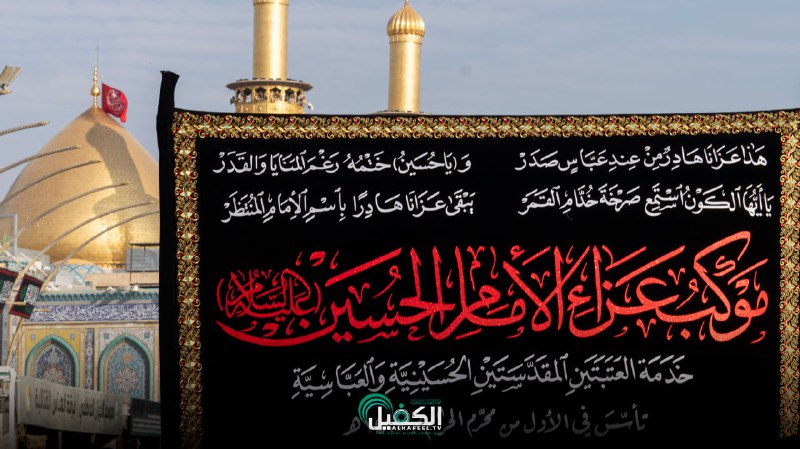 هَذا عَزَانا هَادِرٌ مِنْ عِندِ عَبَّاسٍ صَدَرْ وَ(يَاحُسَين) خَتْمُهُ رَغْمَ المَنَايَا وَالقَدَرْ
يَا أَيُّهَا الكَوْنُ اسْتَمِعْ صَرْخَةَ خُدَّامِ القَمَرْ يَبْقَى عَزَانَا هَادِرًا بِاسْمِ الإِمَامِ المُنتَظَرْ
مَوْكِبُ عَزَاءِ الإِمَامِ الحُسَيْنِ (عَلَيْهِ السَّلَامُ)
خَدَمَةِ العَتَبَتَيْنِ المُقَدَّسَتَيْنِ الحُسَيْنِيَّةِ وَالعَبَّاسِيَّةِ
تأسَّسَ فِي الأول من محرّم
الكفيل
ALKAFEEL.TV